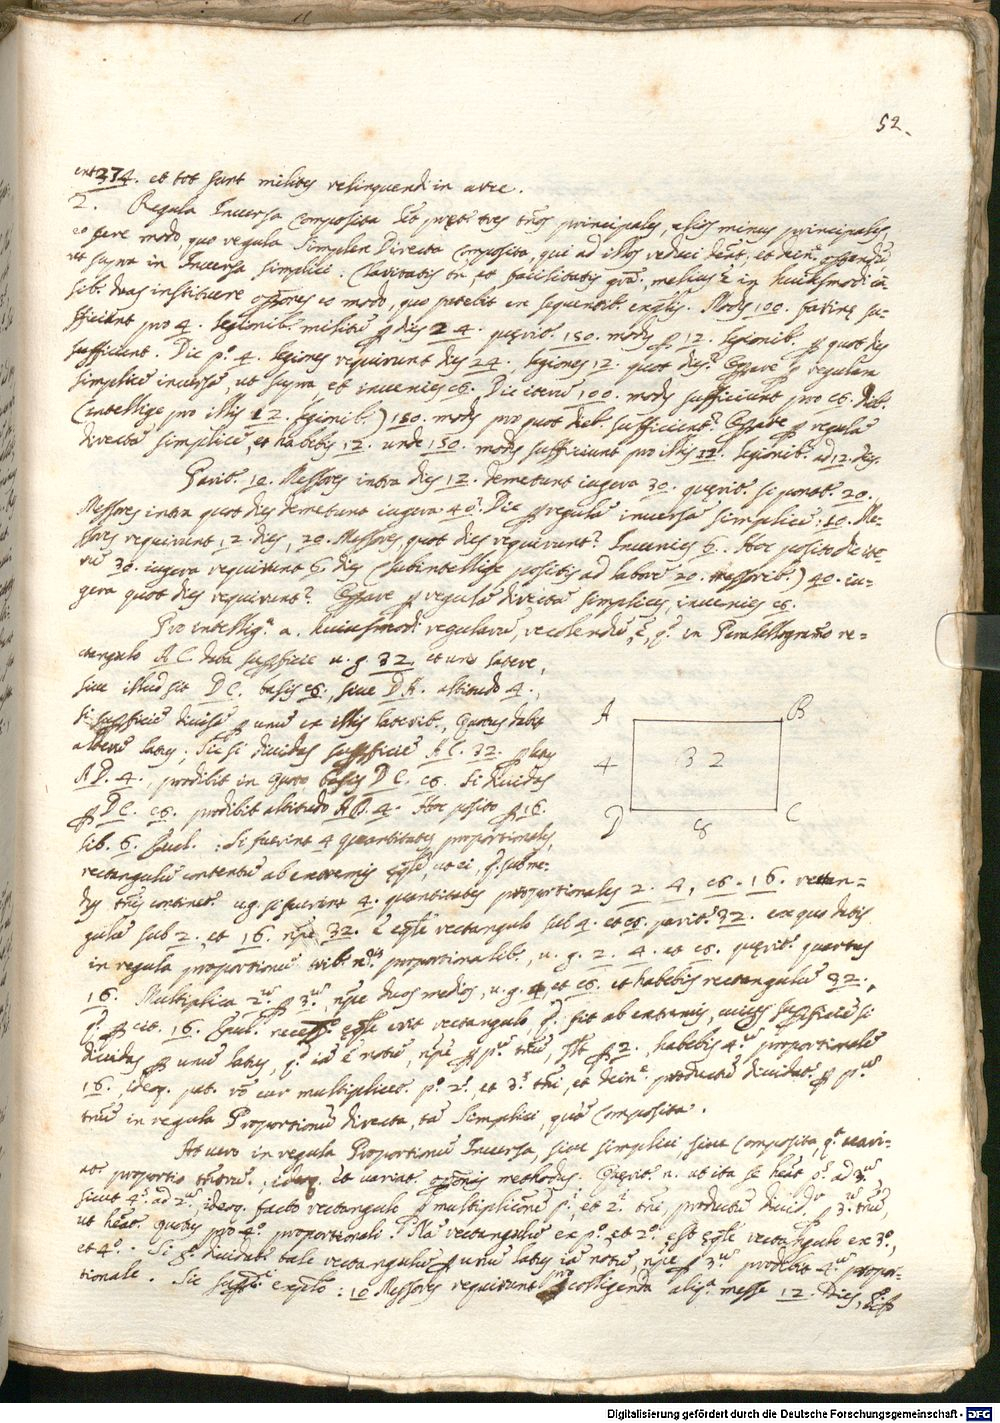 52.
ent 374. et tot sunt milites relinquendi in arce.
2. Regula Inversa Composita est præter tres tños principales, alios minus principales,
eo fere modo, quo regula Simplex Directa Composita, qui ad illos reduci debent, et deinde
ut supra in Inversa simplici. Claritatis tñ et facilitatis melius è in huiusmodi
duas instituere eo modo, quo patebit in sequentib. explis. Modij 100. farinę su-
fficiunt pro 4. legionib. militũ p dies 24. quęrit. 150. modij p 12. legionib. p quot dies
sufficient. Dic p.º 4. legiones requirunt dies 24. legiones 12. quot dies? p regulam
simplicẽ inversã, ut supra, et invenies 8. Dic iterũ 100. modij sufficiunt pro 8. dieb.
(intellige pro illis 12. legionib.) 150. modij pro quot dieb. sufficient? p regulã
directã simplicẽ, et habebis 12. unde 150. modij sufficiunt pro illis 12. legionib. ad 12. dies.
Parit. 10. Messores intra dies 12. demetunt iugera 30. quęrit. si ponat. 20.
Messores intra quot dies demetunt iugera 40? Dic p regulã inversã simplicẽ: 10. Me-
ssores requirunt 12. dies, 20. Messores, quot dies requirunt? Invenies 6. Hoc posito dic ite-
rũ 30. iugera requirunt 6. dies (subintellige positis ad laborẽ 20. messorib.) 40. iu-
gera quot dies requirunt? p regulã directã simplicem, invenies 8.
Pro intellig.ª a. huiusmodi regularũ, recolendũ è, q. in Parallelogramo re-
ctangulo A C. data supficie u. g. 32. et uno latere,
sive illud sit D C. basis 8, sive D A. altitudo 4.,
si supficiẽ divisã p unũ ex illis laterib., quotus dabit
alterũ latus; Sic si dividas supficiẽ A C. 32. p latus
A D. 4., prodibit in quoto basis D C. 8. Si dividas
p D C. 8. prodibit altitudo A D. 4. Hoc posito p 16.
lib. 6. Eucl.: Si fuerint 4 quantitates proportionales,
rectangulũ contentũ ab extremis ęqle, est ei, q. sub me-
dijs tñis continet. u.g. si fuerint 4. quantitates proportionales 2. 4, 8. 16. rectan-
gulũ sub 2. et 16. nẽpe 32. è ęqle rectangulo sub 4. et 8. parit. 32. ex quo datis
in regula proportionũ trib. n.is proportionalib., u. g. 2. 4. et 8. quęrit. quartus
16. Multiplica 2.ũ p 3.ũ, nẽpe duos medios, u. g. 4, et 8. et habebis rectangulũ 32.,
q. p cit. 16. Eucl. ęqle erit rectangulo, q. fit ab extremis, cuius supficiẽ si
dividas p unũ latus, q. iã è notũ, nẽpe p p.ũ tñũ, p 2., habebis 4.ũ proportionalẽ
16. ideoq. pat. cur multiplicet. p.º 2.s et 3.s tñi, et deinde productũ dividat. p p.ũ
tñũ in regula Proportionũ directa, tã Simplici, quã Composita.
At vero in regula Proportionũ Inversa, sive simplici, sive Composita, vari-
at proportio tñorũ, ideoq. et variat. methodus. Quęrit. n. ut ita se hẽat p.s ad 3.ũ
sicut 4.s ad 2.ũ, ideoq. facto rectangulo p multiplicationẽ p.i, et 2.i tñi, productũ dividit. p 3.ũ tñũ,
ut hẽat. quotus pro 4.º proportionali. Nã rectangulũ ex p.º et 2.º est ęqle rectangulo ex 3.º,
et 4.º. Si dividat. tale rectangulũ p unũ latus iã notũ, nẽpe p 3.ũ prodibit 4.ũ propor-
tionale. Sic exẽplo: 10 Messores requirunt pro colligenda aliq.ª messe 12. Dies,
A B
4 32
D 8 C
Digitalisierung gefördert durch die Deutsche Forschungsgemeinschaft - DFG